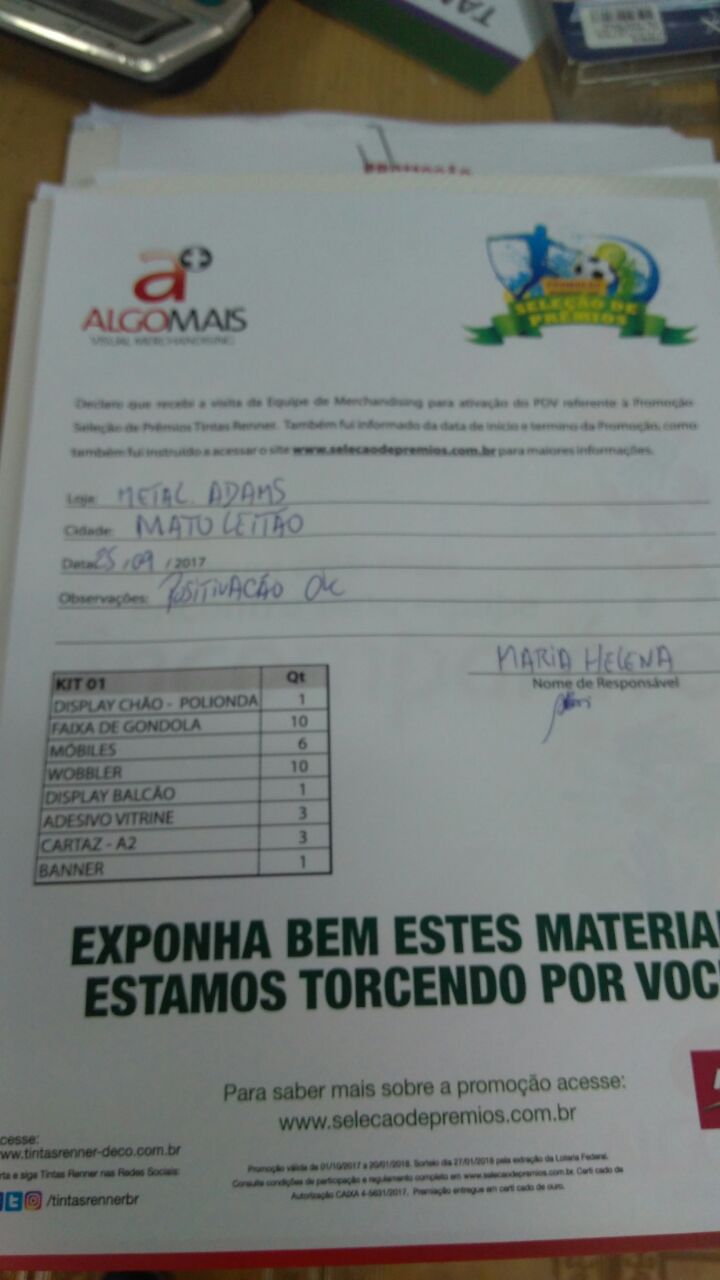 a+
ALGOMAIS
VISUAL MERCHANDISING
SELEÇÃO DE
PRÊMIOS
Declaro que recebi a visita da Equipe de Merchandising para ativação do PDV referente à Promoção
Seleção de Prêmios Tintas Renner. Também fui informado da data de início e termino da Promoção, como
também fui instruído a acessar o site www.selecaodepremios.com.br para maiores informações.
Loja: METAL. ADAMS
Cidade: MATO LEITÃO
Data: 25 / 09 / 2017
Observações: POSITIVAÇÃO OK
MARIA HELENA
Nome de Responsável
KIT 01 Qt
DISPLAY CHÃO - POLIONDA 1
FAIXA DE GONDOLA 10
MÓBILES 6
WOBBLER 10
DISPLAY BALCÃO 1
ADESIVO VITRINE 3
CARTAZ - A2 3
BANNER 1
EXPONHA BEM ESTES MATERIA
ESTAMOS TORCENDO POR VOC
Para saber mais sobre a promoção acesse:
www.selecaodepremios.com.br
cesse:
ww.tintasrenner-deco.com.br
rta e siga Tintas Renner nas Redes Sociais:
/tintasrennerbr
Promoção válida de 01/10/2017 a 20/01/2018. Sorteio dia 27/01/2018 pela extração da Loteria Federal.
Consulte condições de participação e regulamento completo em www.selecaodepremios.com.br. Certificado de
Autorização CAIXA 4-5631/2017. Premiação entregue em certificado de ouro.